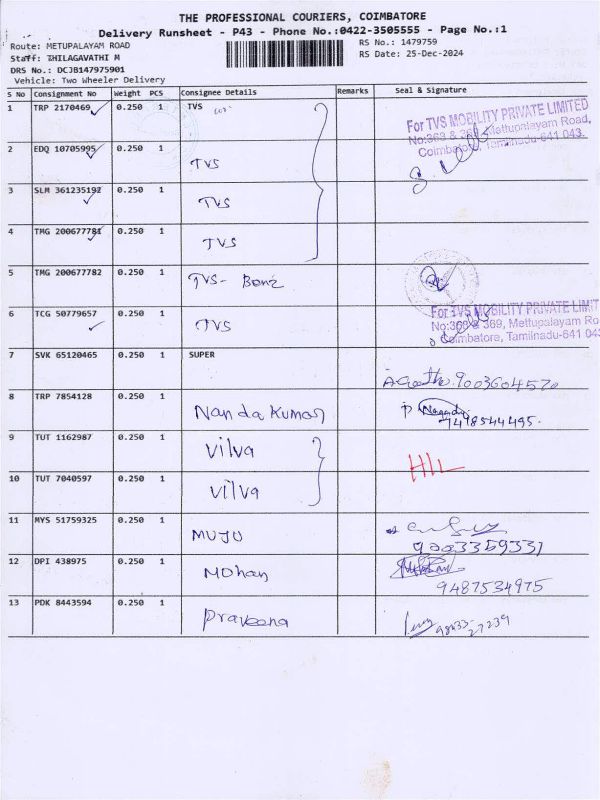 THE PROFESSIONAL COURIERS, COIMBATORE
Delivery Runsheet - P43 - Phone No.:0422-3505555 - Page No.:1
Route: METUPALAYAM ROAD
RS No.: 1479759
Staff: THILAGAVATHI M
RS Date: 25-Dec-2024
DRS No.: DCJB147975901
Vehicle: Two Wheeler Delivery
S No Consignment No Weight PCS Consignee Details Remarks Seal & Signature
1 TRP 2170469 0.250 1 TVS
For TVS MOBILITY PRIVATE LIMITED
No:363 & 369, Mettupalayam Road,
Coimbatore, Tamilnadu-641 043.
2 EDQ 10705995 0.250 1 TVS
3 SLM 361235192 0.250 1 TVS
4 TMG 200677781 0.250 1 TVS
5 TMG 200677782 0.250 1 TVS- Benz
6 TCG 50779657 0.250 1 TVS
For TVS MOBILITY PRIVATE LIMIT
No:363 & 369, Mettupalayam Ro
Coimbatore, Tamilnadu-641 043
7 SVK 65120465 0.250 1 SUPER
9003604520
8 TRP 7854128 0.250 1 Nanda Kumar
9 TUT 1162987 0.250 1 Vilva
10 TUT 7040597 0.250 1 Vilva
11 MYS 51759325 0.250 1 MUJU
9003359331
12 DPI 438975 0.250 1 Mohan
9487534975
13 PDK 8443594 0.250 1 Praveena